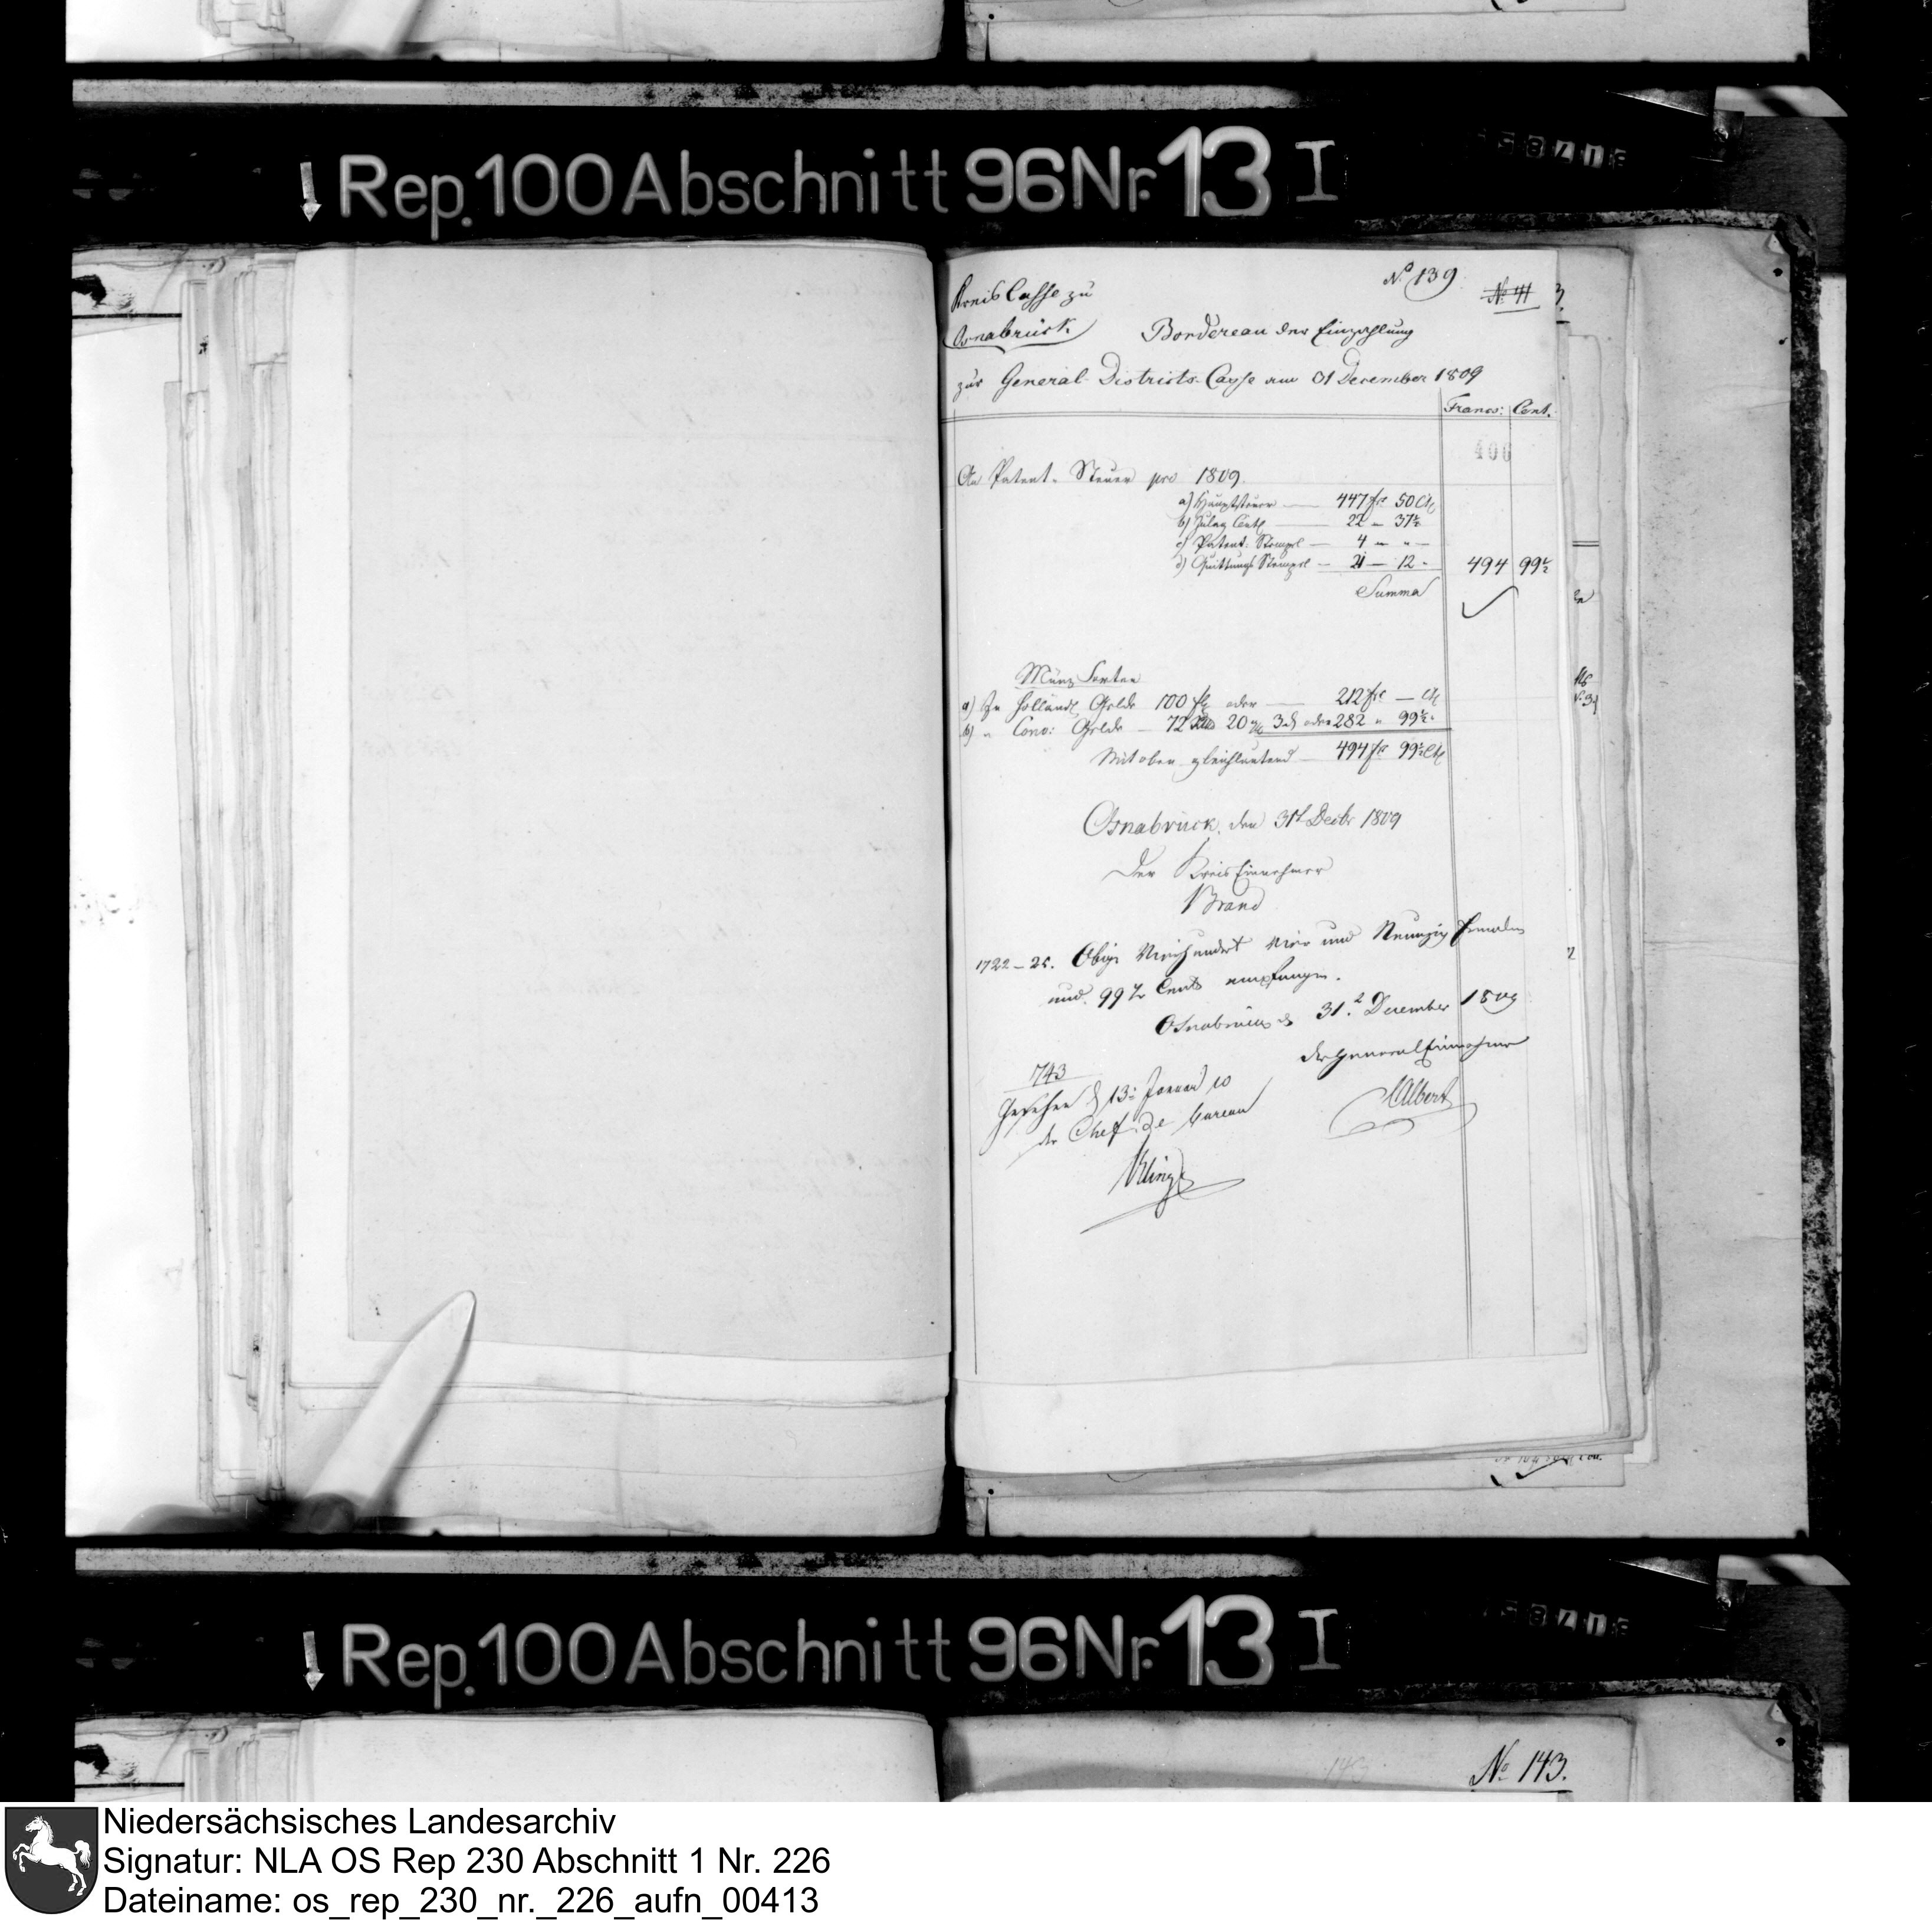 Rep. 100 Abschnitt 96 Nr. 13 I
Kreis Casse zu
Osnabrück
No 139
No 41
Bordereau der Einzahlung
zur General-Districts-Casse am 31 December 1809
Francs: Cent.
400
An Patent-Steuer pro 1809.
a) Hauptsteuer — 447 frc 50 Ct
b) Zulag Cent — 22 — 37½
c) Patent-Stempel — 4 — " —
d) Quittungs Stempel — 21 — 12 - 494 99½
Summa
Münz Sorten
a) In holländ. Gelde 100 fl oder — 212 frc — Ct
b) " Conv: Gelde — 72 20 3 oder 282 " 99½
Mit oben gleichlautend — 494 fr 99½ Ct
Osnabrück, den 31t Decbr 1809
Der Kreis Einnehmer
Brand
1722 - 25. Obige Vierhundert Vier und Neunzig Franken
und 99½ Cents empfangen.
Osnabrück d 31t December 1809
der General Einnehmer
Albert
743
Gesehen d 13t Januar 10
der Chef de bureau
Kling
Rep. 100 Abschnitt 96 Nr. 13 I
No 143.
Niedersächsisches Landesarchiv
Signatur: NLA OS Rep 230 Abschnitt 1 Nr. 226
Dateiname: os_rep_230_nr._226_aufn_00413